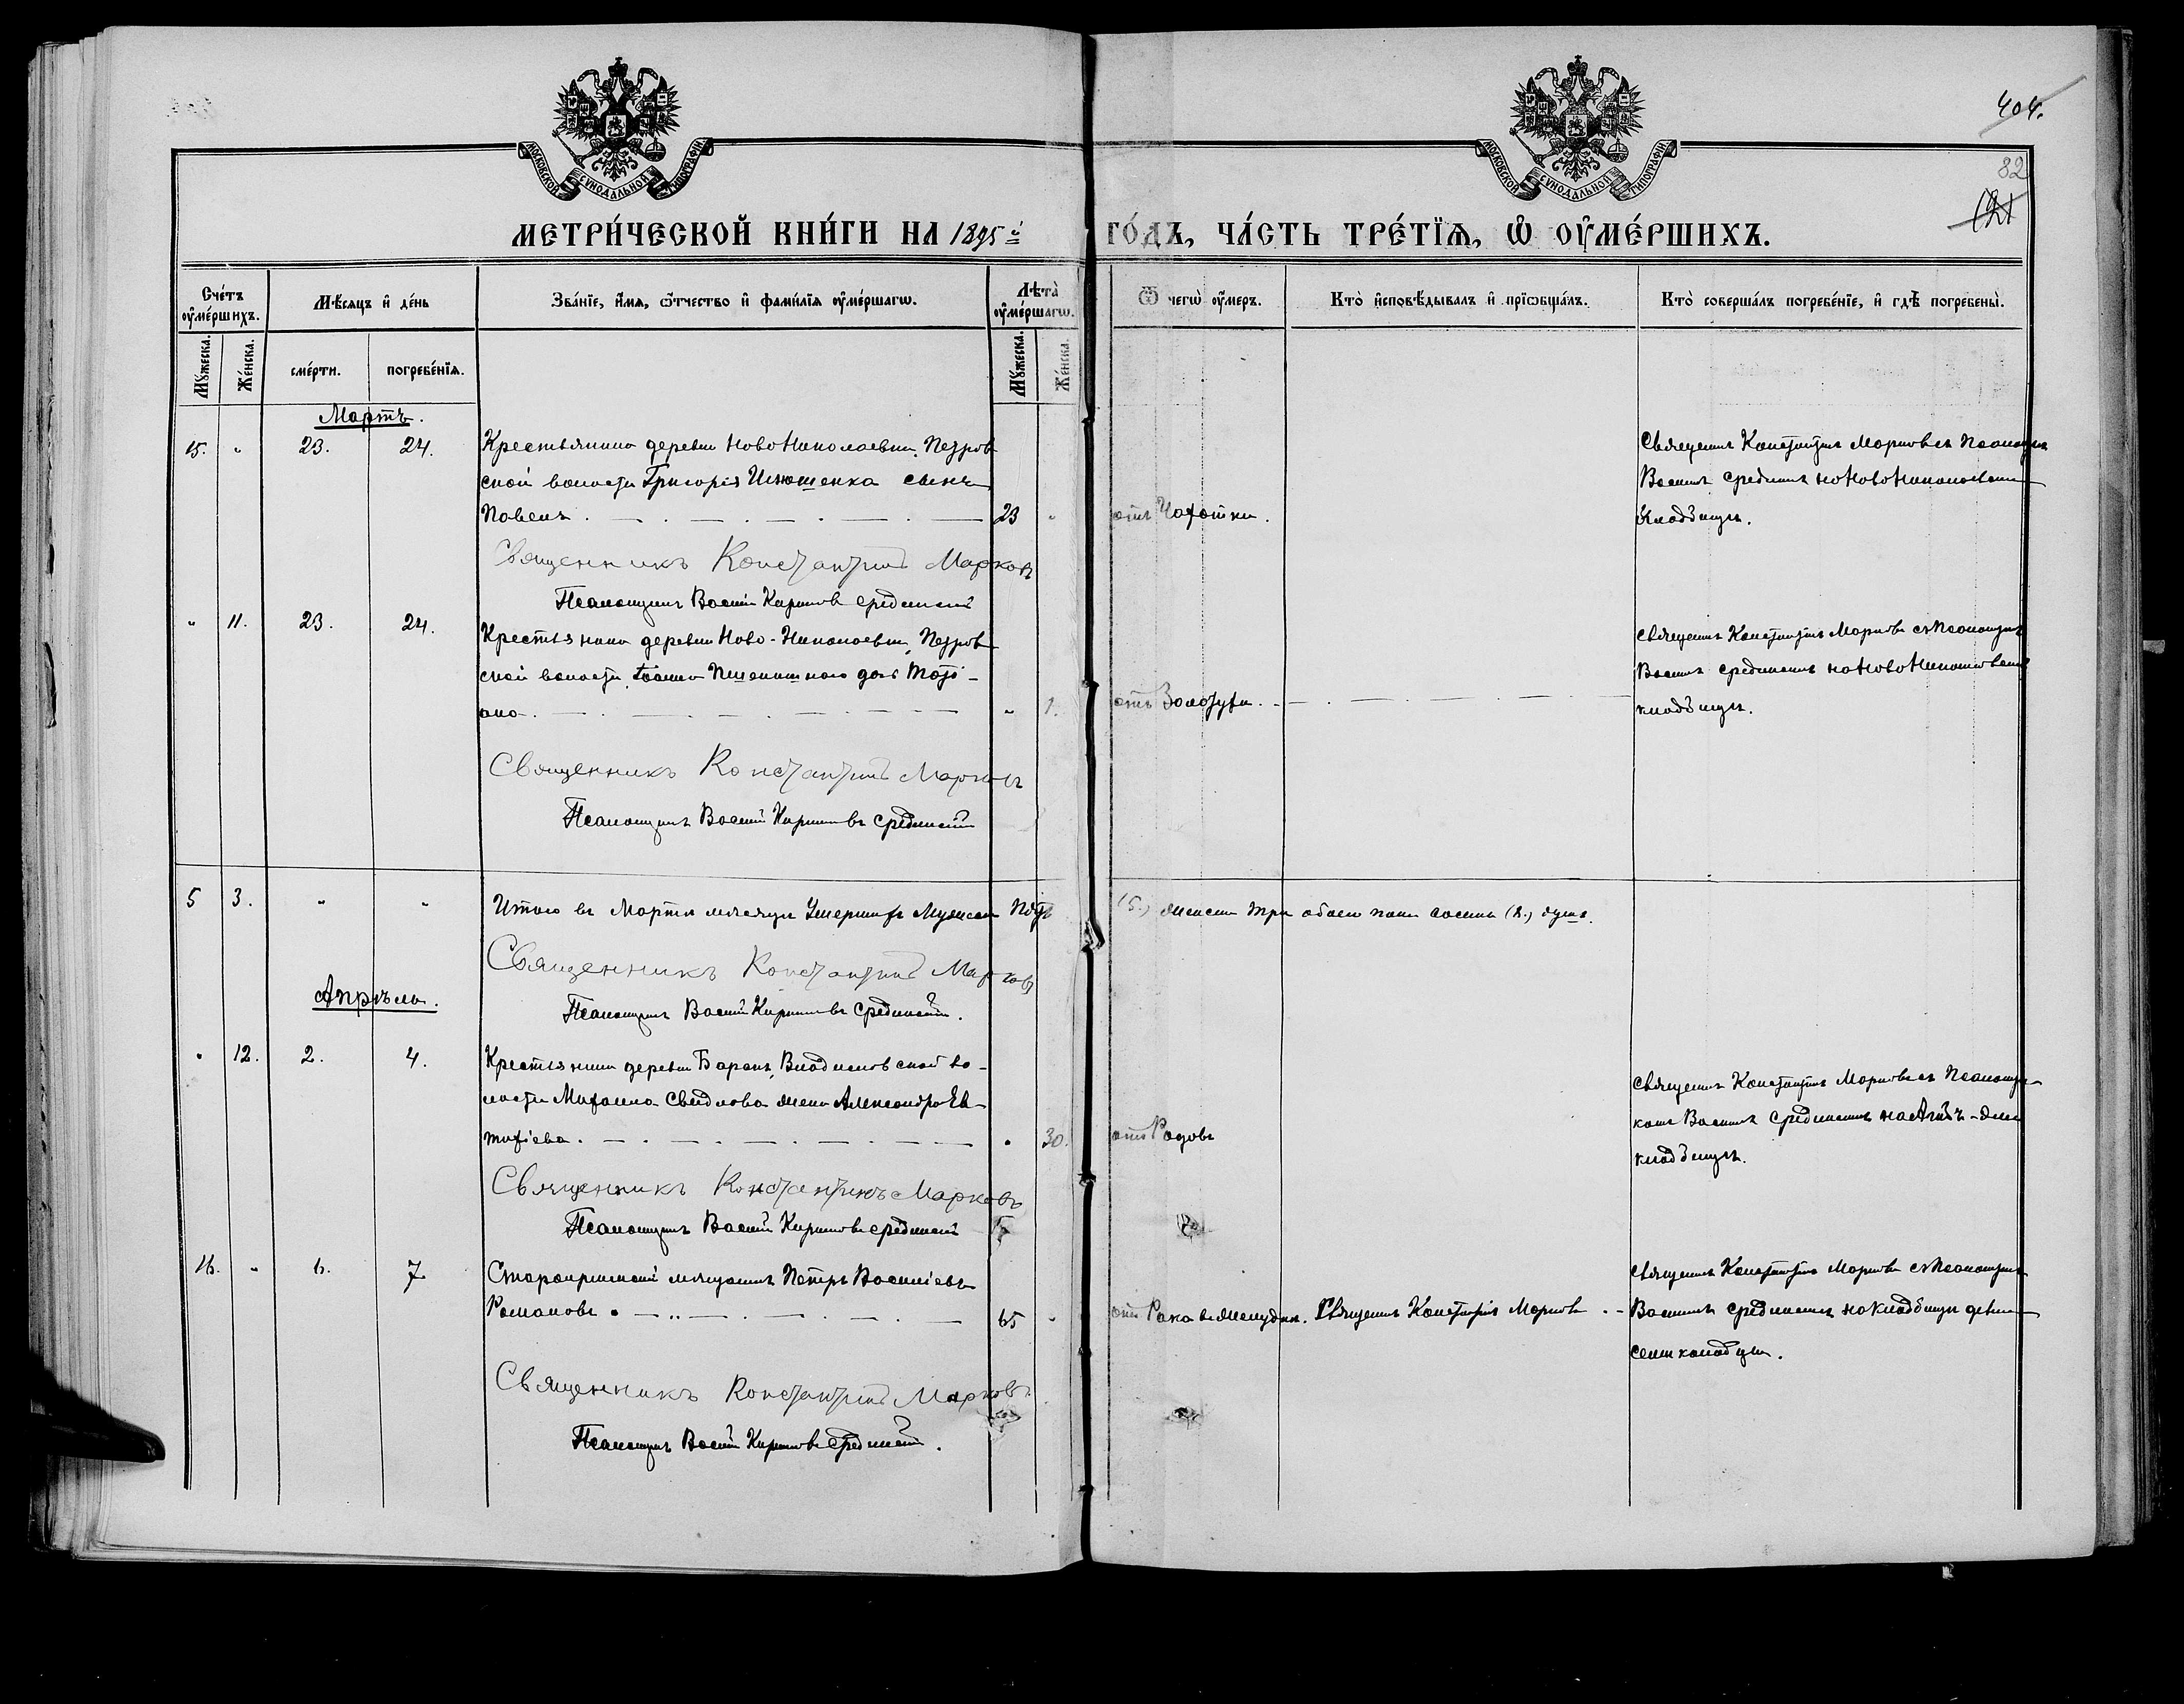 404.
82
МОСКОВСКОЙ СУНОДАЛЬНОЙ ТИПОГРАФІИ
МОСКОВСКОЙ СУНОДАЛЬНОЙ ТИПОГРАФІИ
МЕТРИ́ЧЕСКОЙ КНИ́ГИ НА 1895й ГО́ДЪ, ЧА́СТЬ ТРЕ́ТІѦ, Ѿ ОУМЕ́РШИХЪ.
Сче́тъ оумершихъ.
Мужеска.
Же́нска.
Мѣсяцъ и де́нь
сме́рти.
погребе́нїя.
Зва́нїе, имя, ѿтчество и фами́лїя оуме́ршагѡ.
Лѣта оуме́ршагѡ.
Мужеска.
Же́нска.
Ѿ чегѡ оумеръ.
Кто̀ исповѣдывалъ и прїѡбщалъ.
Кто̀ совершалъ погребе́нїе, и гдѣ погребены̀.
Мартъ.
15. " 23. 24. Крестьянина деревни Ново Николаевки, Петров
ской волости Григорія Ильюшенка сынъ
Павелъ. 23 " отъ Чахотки.
Священникъ Константинъ Марковъ съ Псаломщик
Василь Срединскимъ на Ново Николаевском
Кладбищѣ.
Священникъ Константинъ Марковъ
Псаломщикъ Васлій Кириловъ Срединскій
" 11. 23. 24. Крестьянина деревни Ново-Николаевки, Петров
ской волости, Іоанна Пшеничного дочь Тоті-
ана. " 1. отъ Золотухи.
Священникъ Константинъ Марковъ съ Псаломщик
Василь Срединскимъ на Ново Николаевском
кладбищѣ.
Священникъ Константинъ Марковъ
Псаломщикъ Васлій Кириловъ Срединскій
5 3. " " Итого въ Мартѣ мѣсяцѣ Умершихъ Мужеска Пять (5.) Женска три обоего пола восемь (8.) душъ.
Священникъ Константинъ Марковъ
Псаломщикъ Васлій Кириловъ Срединскій.
Апрѣль.
" 12. 2. 4. Крестьянина деревни Баранъ, Владиславской во-
лости Михаила Свидлова жена Александра Ев-
тихіева. " 30. отъ Родовъ
Священникъ Константинъ Марковъ съ Псаломщи-
комъ Василь Срединскимъ на
кладбищѣ.
Священникъ Константинъ Марковъ
Псаломщикъ Васлій Кириловъ Срединскій
16. " 6. 7 Старокрымскій мѣщанинъ Петръ Василіевъ
Романовъ. 65 " отъ Рака въ желудкѣ. Священникъ Константинъ Марковъ.
Священникъ Константинъ Марковъ съ Псаломщик
Василь Срединскимъ на Кладбищѣ
Священникъ Константинъ Марковъ
Псаломщикъ Васлій Кириловъ Срединскій.